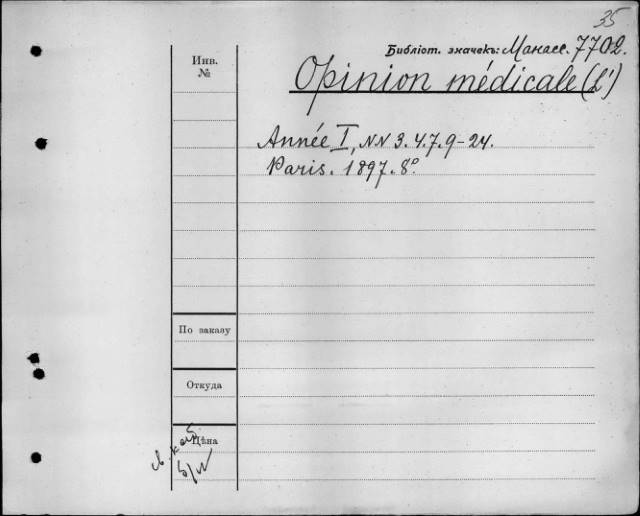 35
Библіот. значекъ: Манасс. 7702.
Инв.
№
Opinion médicale (L')
Année I, NN 3.4.7.9-24.
Paris. 1897. 8°.
По заказу
Откуда
Цѣна